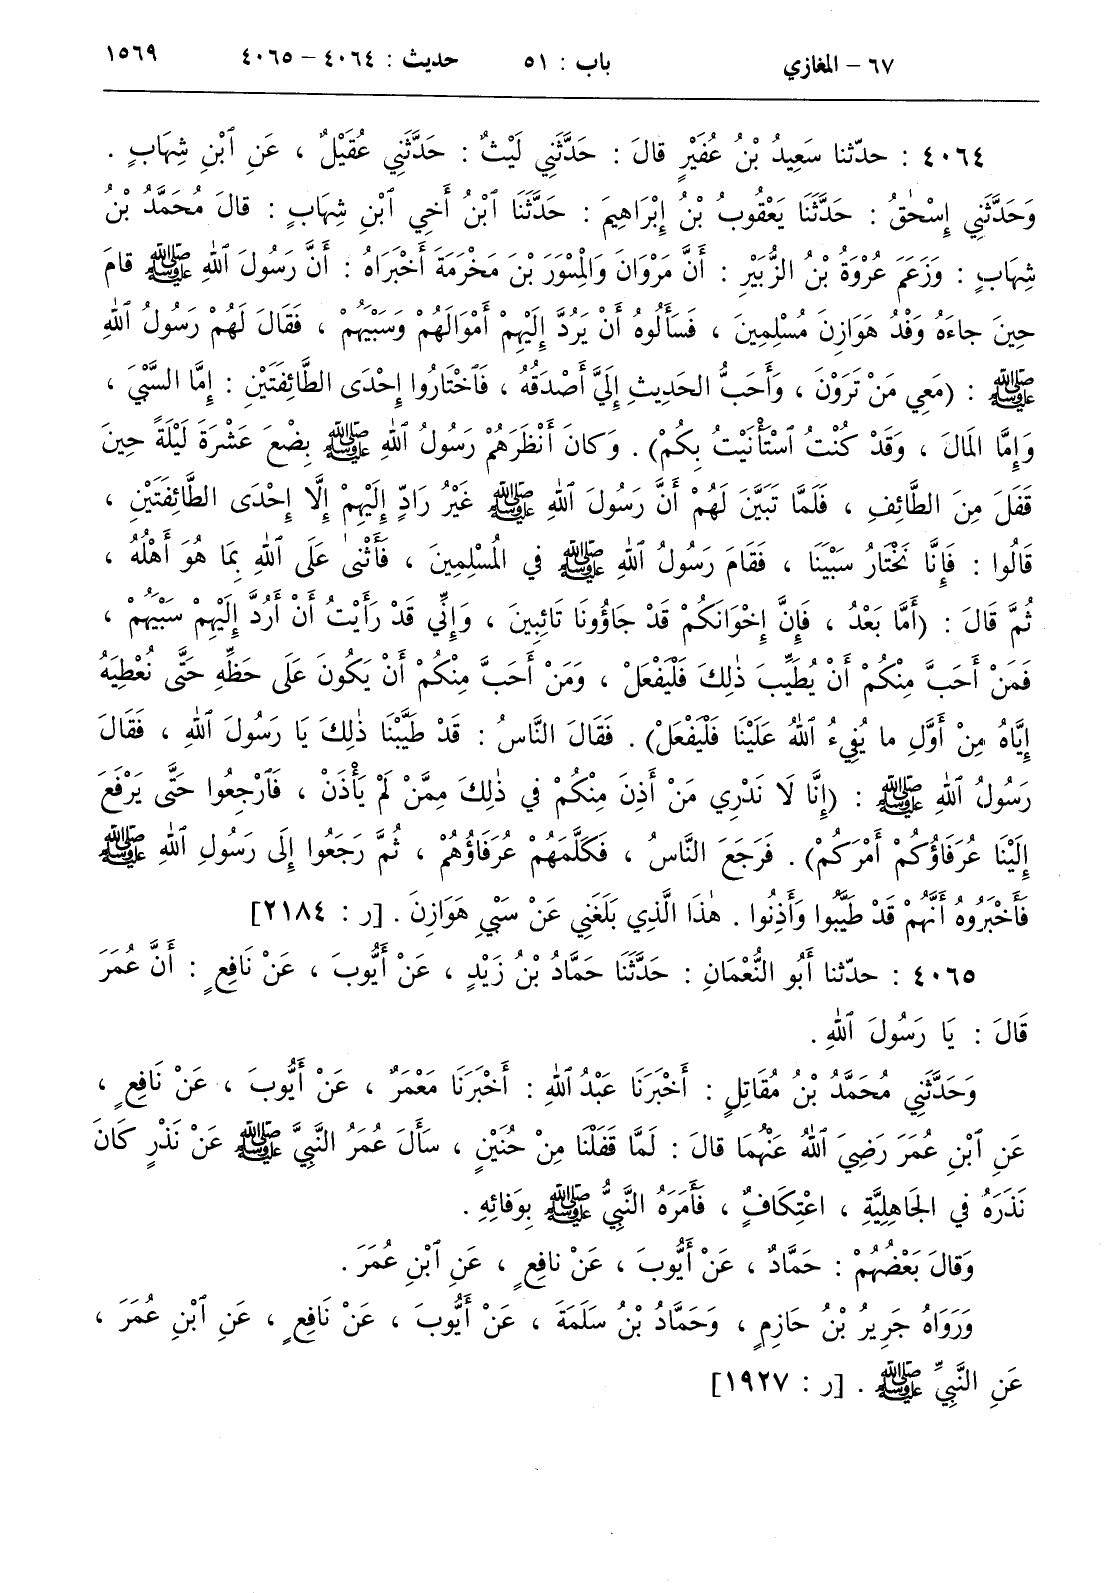 ٦٧ – المغازي باب : ٥١ حديث : ٤٠٦٤ – ٤٠٦٥ ١٥٦٩
٤٠٦٤ : حدّثنا سَعِيدُ بْنُ عُفَيْرٍ قالَ : حَدَّثَنِي لَيْثٌ : حَدَّثَنِي عُقَيْلٌ ، عَنِ ٱبْنِ شِهَابٍ .
وَحَدَّثَنِي إِسْحٰقُ : حَدَّثَنَا يَعْقُوبُ بْنُ إِبْرَاهِيمَ : حَدَّثَنَا ٱبْنُ أَخِي ٱبْنِ شِهَابٍ : قالَ مُحَمَّدُ بْنُ
شِهَابٍ : وَزَعَمَ عُرْوَةُ بْنُ الزُّبَيْرِ : أَنَّ مَرْوَانَ وَالْمِسْوَرَ بْنَ مَخْرَمَةَ أَخْبَرَاهُ : أَنَّ رَسُولَ ٱللهِ ﷺ قامَ
حِينَ جاءَهُ وَفْدُ هَوَازِنَ مُسْلِمِينَ ، فَسَأَلُوهُ أَنْ يَرُدَّ إِلَيْهِمْ أَمْوَالَهُمْ وَسَبْيَهُمْ ، فَقَالَ لَهُمْ رَسُولُ ٱللهِ
ﷺ : (مَعِي مَنْ تَرَوْنَ ، وَأَحَبُّ الحَدِيثِ إِلَيَّ أَصْدَقُهُ ، فَٱخْتَارُوا إِحْدَى الطَّائِفَتَيْنِ : إِمَّا السَّبْيَ ،
وَإِمَّا المَالَ ، وَقَدْ كُنْتُ ٱسْتَأْنَيْتُ بِكُمْ) . وَكانَ أَنْظَرَهُمْ رَسُولُ ٱللهِ ﷺ بِضْعَ عَشْرَةَ لَيْلَةً حِينَ
قَفَلَ مِنَ الطَّائِفِ ، فَلَمَّا تَبَيَّنَ لَهُمْ أَنَّ رَسُولَ ٱللهِ ﷺ غَيْرُ رَادٍّ إِلَيْهِمْ إِلَّا إِحْدَى الطَّائِفَتَيْنِ ،
قَالُوا : فَإِنَّا نَخْتَارُ سَبْيَنَا ، فَقَامَ رَسُولُ ٱللهِ ﷺ في المُسْلِمِينَ ، فَأَثْنىٰ عَلَى ٱللهِ بِمَا هُوَ أَهْلُهُ ،
ثُمَّ قَالَ : (أَمَّا بَعْدُ ، فَإِنَّ إِخْوَانَكُمْ قَدْ جَاؤُونَا تَائِبِينَ ، وَإِنِّي قَدْ رَأَيْتُ أَنْ أَرُدَّ إِلَيْهِمْ سَبْيَهُمْ ،
فَمَنْ أَحَبَّ مِنْكُمْ أَنْ يُطَيِّبَ ذٰلِكَ فَلْيَفْعَلْ ، وَمَنْ أَحَبَّ مِنْكُمْ أَنْ يَكُونَ عَلَى حَظِّهِ حَتَّى نُعْطِيَهُ
إِيَّاهُ مِنْ أَوَّلِ ما يُفِيءُ ٱللهُ عَلَيْنَا فَلْيَفْعَلْ) . فَقَالَ النَّاسُ : قَدْ طَيَّبْنَا ذٰلِكَ يَا رَسُولَ ٱللهِ ، فَقَالَ
رَسُولُ ٱللهِ ﷺ : (إِنَّا لَا نَدْرِي مَنْ أَذِنَ مِنْكُمْ في ذٰلِكَ مِمَّنْ لَمْ يَأْذَنْ ، فَٱرْجِعُوا حَتَّى يَرْفَعَ
إِلَيْنَا عُرَفَاؤُكُمْ أَمْرَكُمْ) . فَرَجَعَ النَّاسُ ، فَكَلَّمَهُمْ عُرَفَاؤُهُمْ ، ثُمَّ رَجَعُوا إِلَى رَسُولِ ٱللهِ ﷺ
فَأَخْبَرُوهُ أَنَّهُمْ قَدْ طَيَّبُوا وَأَذِنُوا . هٰذَا الَّذِي بَلَغَنِي عَنْ سَبْيِ هَوَازِنَ . [ر : ٢١٨٤]
٤٠٦٥ : حدّثنا أَبُو النُّعْمَانِ : حَدَّثَنَا حَمَّادُ بْنُ زَيْدٍ ، عَنْ أَيُّوبَ ، عَنْ نَافِعٍ : أَنَّ عُمَرَ
قَالَ : يَا رَسُولَ ٱللهِ .
وَحَدَّثَنِي مُحَمَّدُ بْنُ مُقَاتِلٍ : أَخْبَرَنَا عَبْدُ ٱللهِ : أَخْبَرَنَا مَعْمَرٌ ، عَنْ أَيُّوبَ ، عَنْ نَافِعٍ ،
عَنِ ٱبْنِ عُمَرَ رَضِيَ ٱللهُ عَنْهُمَا قالَ : لَمَّا قَفَلْنَا مِنْ حُنَيْنٍ ، سَأَلَ عُمَرُ النَّبِيَّ ﷺ عَنْ نَذْرٍ كَانَ
نَذَرَهُ في الجَاهِلِيَّةِ ، اعْتِكَافٌ ، فَأَمَرَهُ النَّبِيُّ ﷺ بِوَفائِهِ .
وَقالَ بَعْضُهُمْ : حَمَّادٌ ، عَنْ أَيُّوبَ ، عَنْ نافِعٍ ، عَنِ ٱبْنِ عُمَرَ .
وَرَوَاهُ جَرِيرُ بْنُ حَازِمٍ ، وَحَمَّادُ بْنُ سَلَمَةَ ، عَنْ أَيُّوبَ ، عَنْ نَافِعٍ ، عَنِ ٱبْنِ عُمَرَ ،
عَنِ النَّبِيِّ ﷺ . [ر : ١٩٢٧]